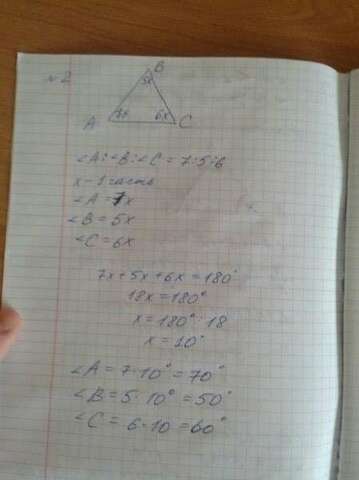 №2
B
5x
7x
6x
A
C
∠A:∠B:∠C = 7:5:6
x - 1 часть
∠A = 7x
∠B = 5x
∠C = 6x
7x + 5x + 6x = 180°
18x = 180°
x = 180° : 18
x = 10°
∠A = 7·10° = 70°
∠B = 5·10° = 50°
∠C = 6·10 = 60°